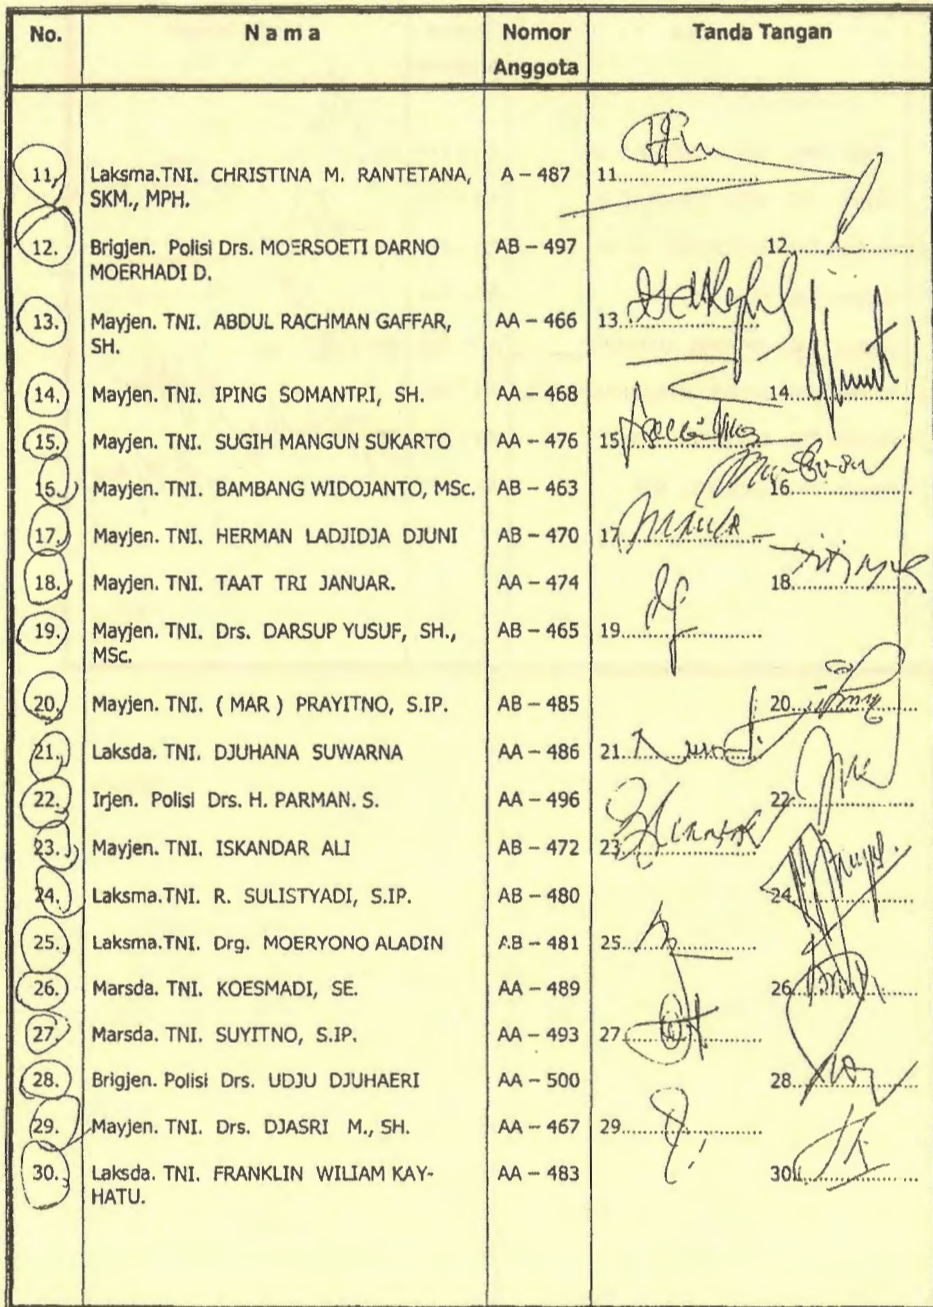 No. Nama Nomor Anggota Tanda Tangan
11. Laksma.TNI. CHRISTINA M. RANTETANA, A – 487 11..................
SKM., MPH.
12. Brigjen. Polisi Drs. MOERSOETI DARNO AB – 497 12..................
MOERHADI D.
13. Mayjen. TNI. ABDUL RACHMAN GAFFAR, AA – 466 13..................
SH.
14. Mayjen. TNI. IPING SOMANTRI, SH. AA – 468 14..................
15. Mayjen. TNI. SUGIH MANGUN SUKARTO AA – 476 15..................
16. Mayjen. TNI. BAMBANG WIDOJANTO, MSc. AB – 463 16..................
17. Mayjen. TNI. HERMAN LADJIDJA DJUNI AB – 470 17..................
18. Mayjen. TNI. TAAT TRI JANUAR. AA – 474 18..................
19. Mayjen. TNI. Drs. DARSUP YUSUF, SH., AB – 465 19..................
MSc.
20. Mayjen. TNI. ( MAR ) PRAYITNO, S.IP. AB – 485 20..................
21. Laksda. TNI. DJUHANA SUWARNA AA – 486 21..................
22. Irjen. Polisi Drs. H. PARMAN. S. AA – 496 22..................
23. Mayjen. TNI. ISKANDAR ALI AB – 472 23..................
24. Laksma.TNI. R. SULISTYADI, S.IP. AB – 480 24..................
25. Laksma.TNI. Drg. MOERYONO ALADIN AB – 481 25..................
26. Marsda. TNI. KOESMADI, SE. AA – 489 26..................
27. Marsda. TNI. SUYITNO, S.IP. AA – 493 27..................
28. Brigjen. Polisi Drs. UDJU DJUHAERI AA – 500 28..................
29. Mayjen. TNI. Drs. DJASRI M., SH. AA – 467 29..................
30. Laksda. TNI. FRANKLIN WILIAM KAY- AA – 483 30..................
HATU.